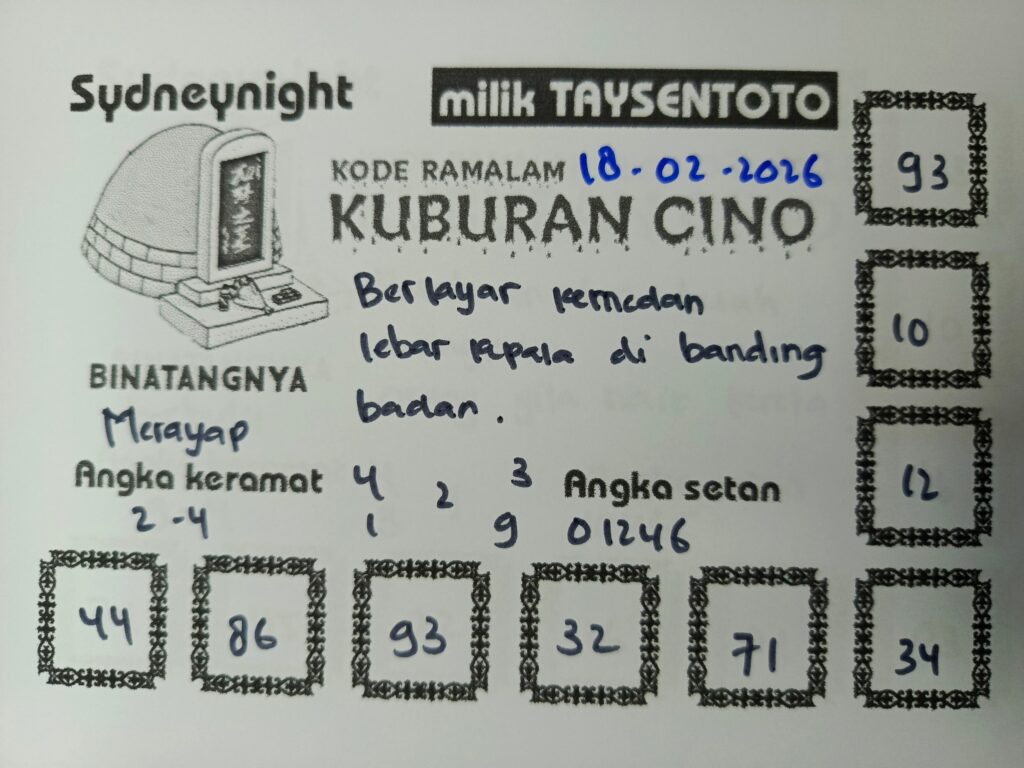 Sydneynight
milik TAYSENTOTO
KODE RAMALAM 18-02-2026
KUBURAN CINO
Berlayar kemedan
lebar kepala di banding
badan.
BINATANGNYA
Merayap
Angka keramat
2-4
4 3
2
1 9
Angka setan
01246
93
10
12
44 86 93 32 71 34